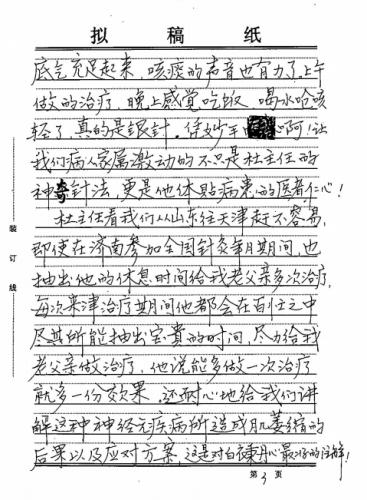 拟稿纸
底气充足起来，咳痰的声音也有力了，上午
做的治疗，晚上感觉吃饭、喝水呛咳
轻了，真的是银针 妙手 心阿！让
我们病人家属激动的不只是杜主任的
神奇针法，更是他体贴病患的医者仁心！
杜主任看我们从山东往天津赶不容易，
即使在济南参加全国针灸年期间，也
抽出他的休息时间给我老父亲多次治疗，
每次来津治疗期间他都会在百忙之中
尽其所能抽出宝贵的时间，尽力给我
老父亲做治疗，他说能多做一次治疗
就多一份效果，还耐心地给我们讲
解这种神经元疾病所造成肌萎缩的
后果以及应对方案，这是对白衣 心最好的注解！
装订线
第3页